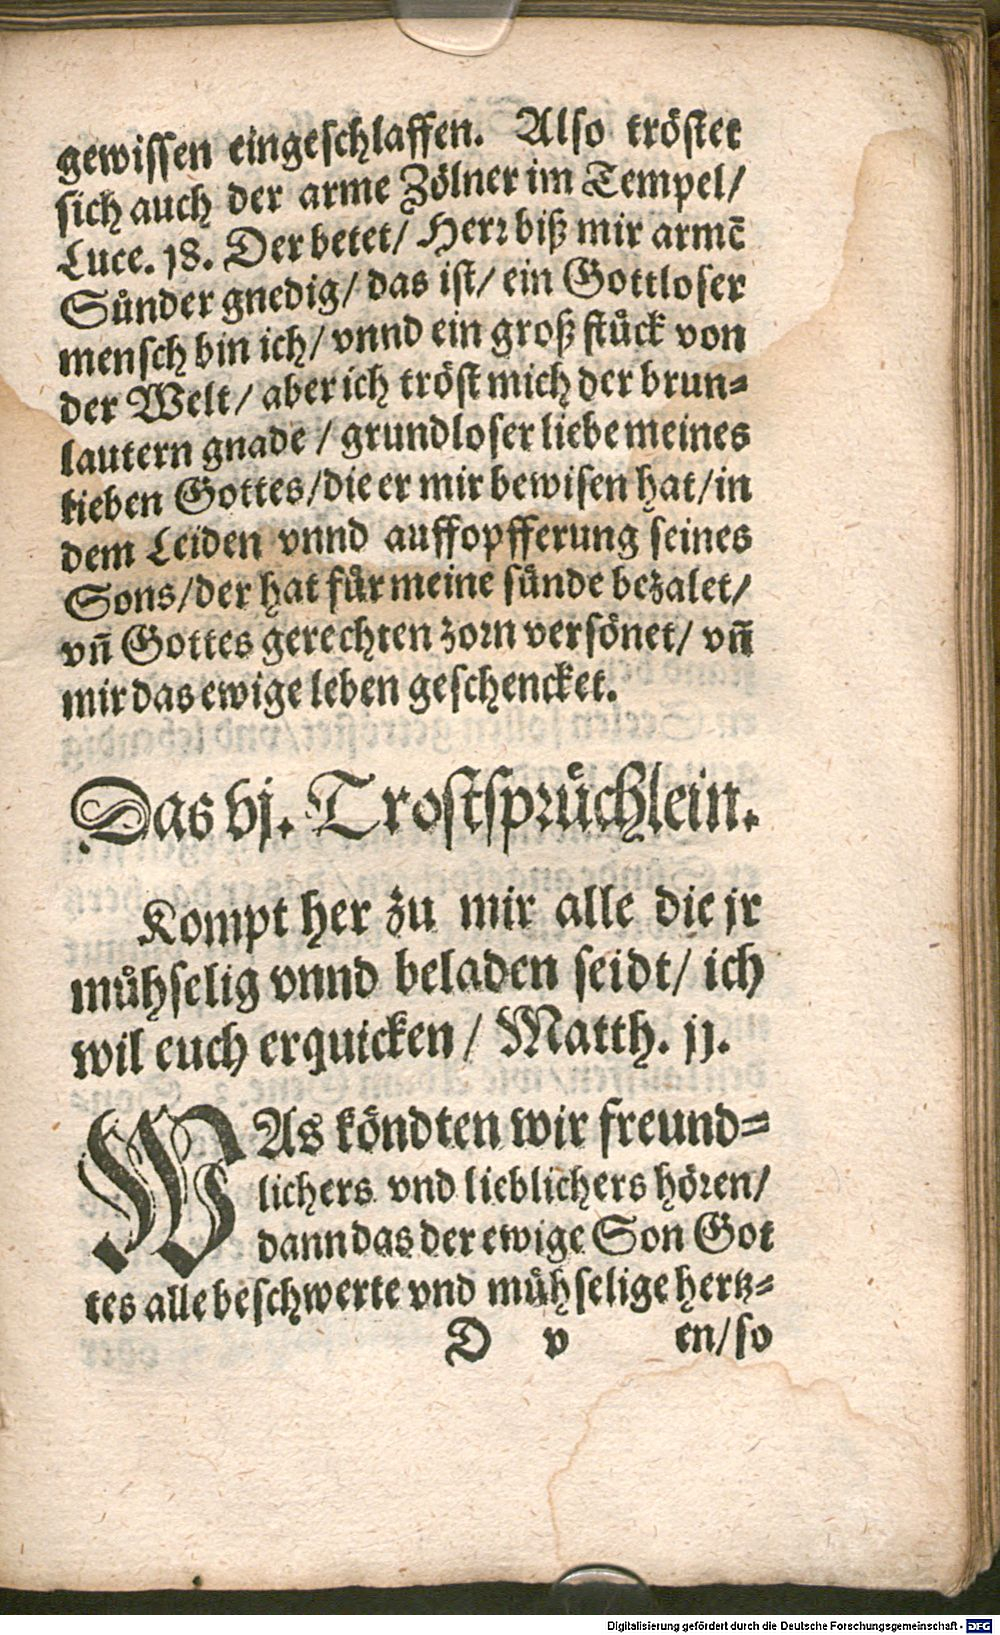 gewissen eingeschlaffen. Also tröstet
sich auch der arme Zölner im Tempel/
Luce. 18. Der betet/ Herr biß mir armē
Sůnder gnedig/ das ist/ ein Gottloser
mensch bin ich/ vnnd ein groß stůck von
der Welt/ aber ich tröst mich der brun-
lautern gnade / grundloser liebe meines
lieben Gottes/die er mir bewisen hat/in
dem Leiden vnnd auffopfferung seines
Sons/der hat fůr meine sůnde bezalet/
vn̄ Gottes gerechten zorn versönet/ vn̄
mir das ewige leben geschencket.
Das vj. Trostsprůchlein.
Kompt her zu mir alle die jr
můhselig vnnd beladen seidt/ ich
wil euch erquicken / Matth. jj.
WAs köndten wir freund-
lichers vnd lieblichers hören/
dann das der ewige Son Got
tes alle beschwerte vnd můhselige hertz-
D v en/so
Digitalisierung gefördert durch die Deutsche Forschungsgemeinschaft - DFG